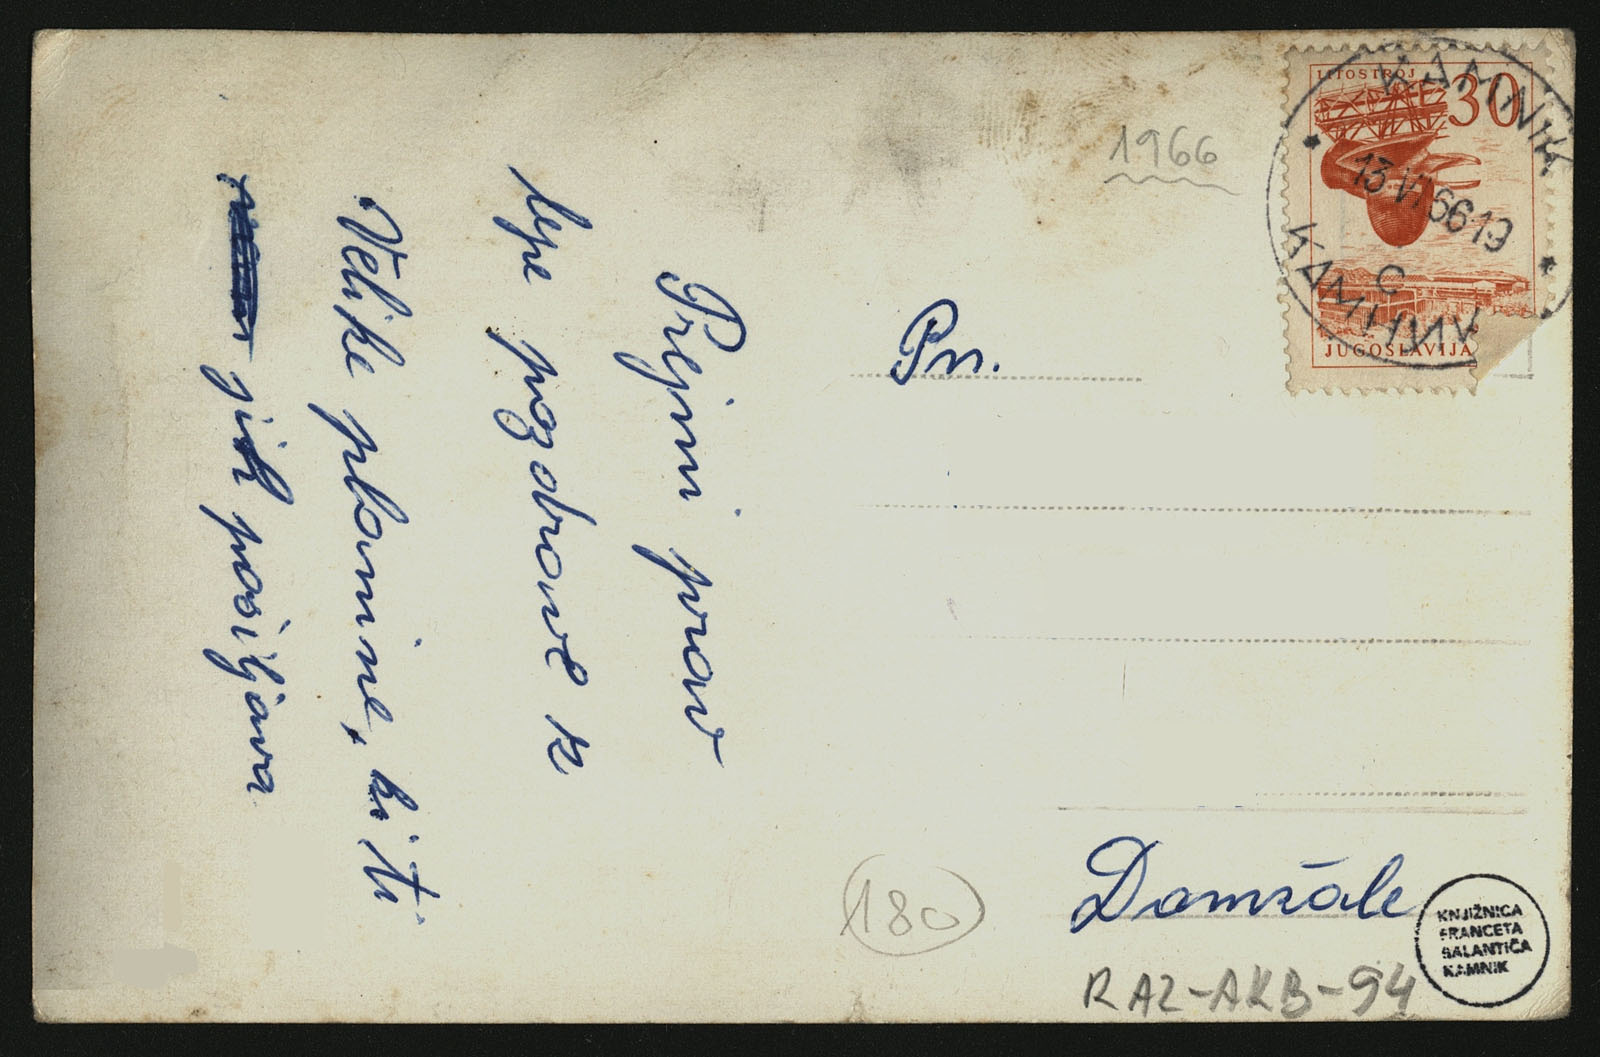 Prejmi prav
lepe pozdrave iz
Velike planine, ki ti
jih pošiljava
1966
LITOSTROJ
30
JUGOSLAVIJA
KAMNIK
13 VI 66 19
C
КАМНИК
Pn.
Domžale
180
RAZ-AKB-94
KNJIŽNICA
FRANCETA
BALANTIČA
KAMNIK